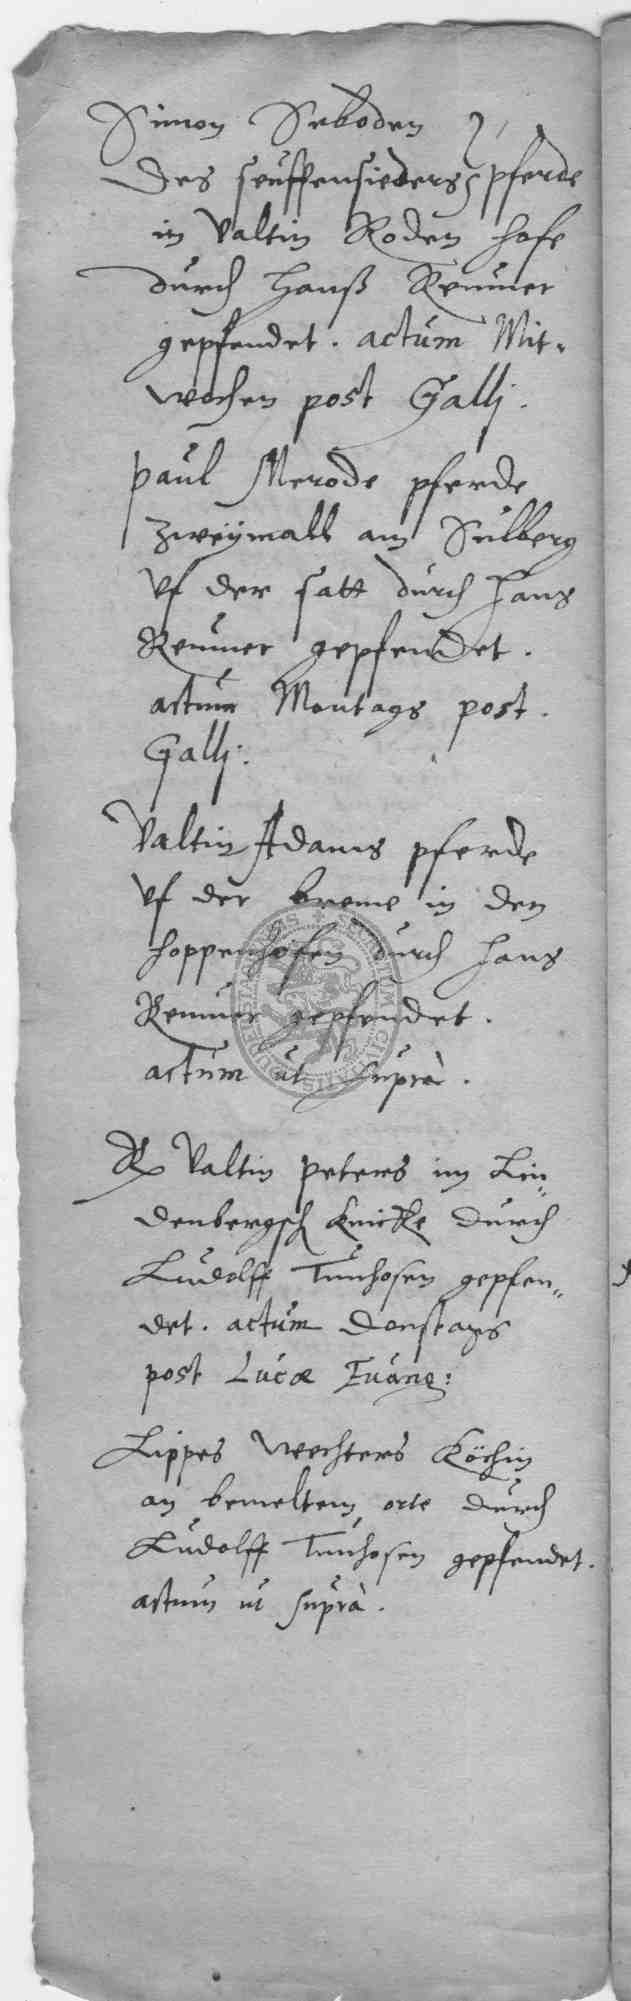 Simon Seboden
des seuffensieders pferde
in Valtin Roden hofe
durch Hanß Renner
gepfendet. actum Mit-
wochen post Galli.
Paul Merode pferde
zweymall am Sulberg
vf der satt durch Hans
Renner gepfendet.
actum Montags post.
Galli:
Valtin Adams pferde
vf der breme in den
hoppenhofen durch Hans
Renner gepfendet.
actum ut suprà.
Valtin Peters im Lin-
denbergsch Knicke durch
Ludolff Tunhosen gepfen-
det. actum Donstags
post Lucæ Euang:
Lippes wechters Köchin
an bemeltem orte durch
Ludolff Tunhosen gepfendet.
actum ut suprà.